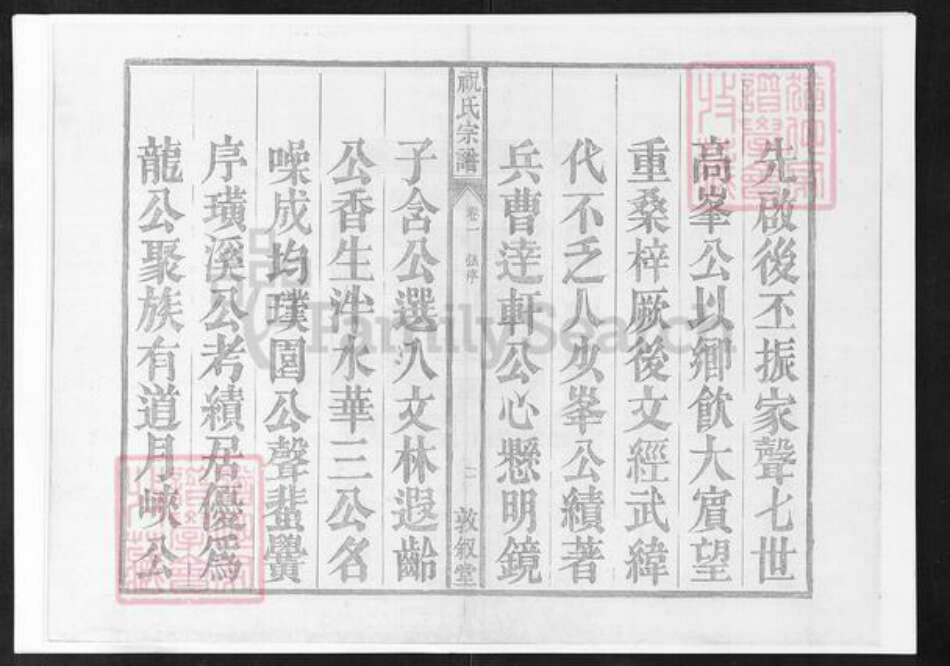 先啟後丕振家聲七世
高峯公以鄉飲大賔望
重桑梓厥後文經武緯
代不乏人少峯公績著
兵曹達軒公心懸明鏡
祝氏宗譜 卷一 序 二 敦叙堂
子含公選入文林遐齡
公香生泮水華三公名
噪成均璞園公聲蜚黌
序璜溪公考績居優爲
龍公聚族有道月峽公
FamilySearch